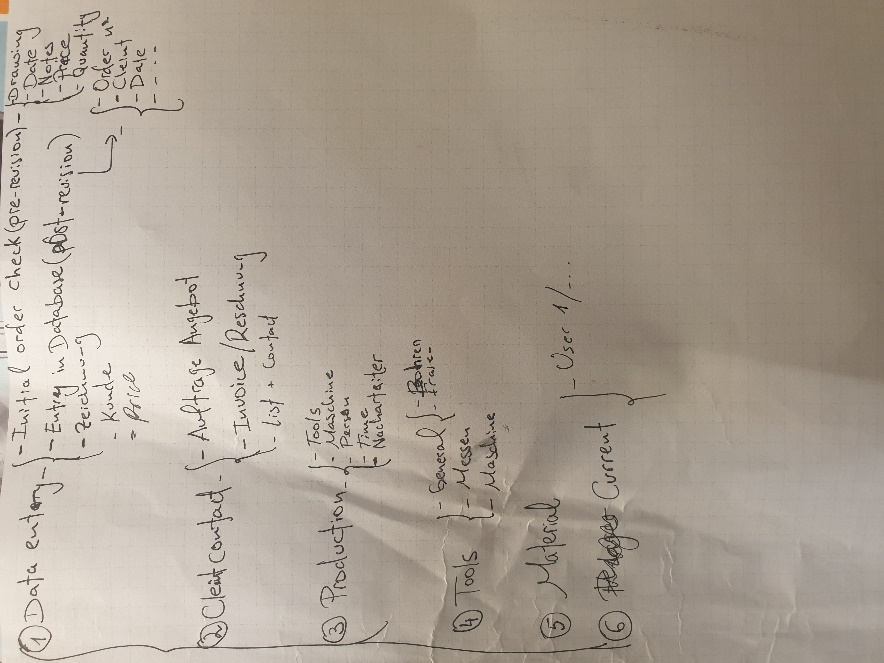 ① Data entry - Initial order check (pre-revision) - - Drawing
- Date
- Notes
- Price
- Quantity
- Entry in Database (post-revision)
- Order nº
- Cleint
- Date
- ...
- Zeichnung
- Kunde
- Price
② Cleint Contact - - Auftrage Angebot
- Invoice / Reschnung
- List + Contact
③ Production - - Tools
- Maschine
- Person
- Time
- Nacharfeiter
④ Tools - General - Bohren
- Fräsen
- Messen
- Maschine
⑤ Material
⑥ Current - User 1/...